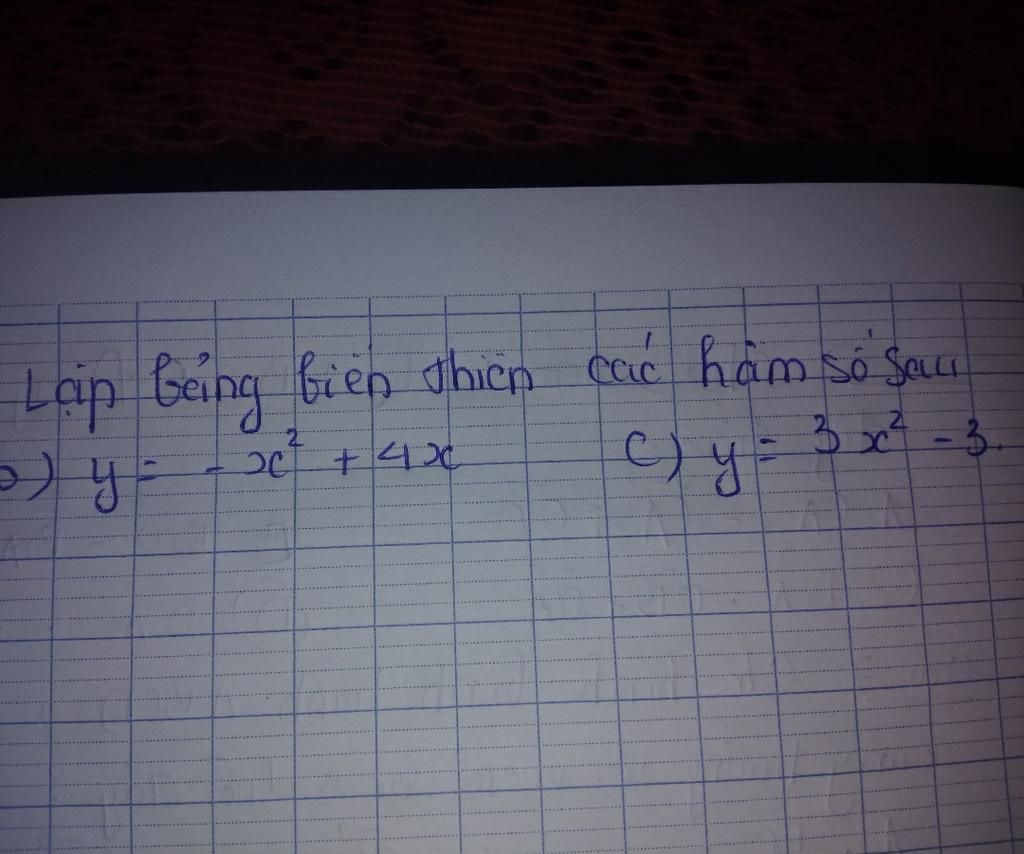 Lập bảng biến thiên các hàm số sau
y = - x² + 4x C) y = 3x² - 3.